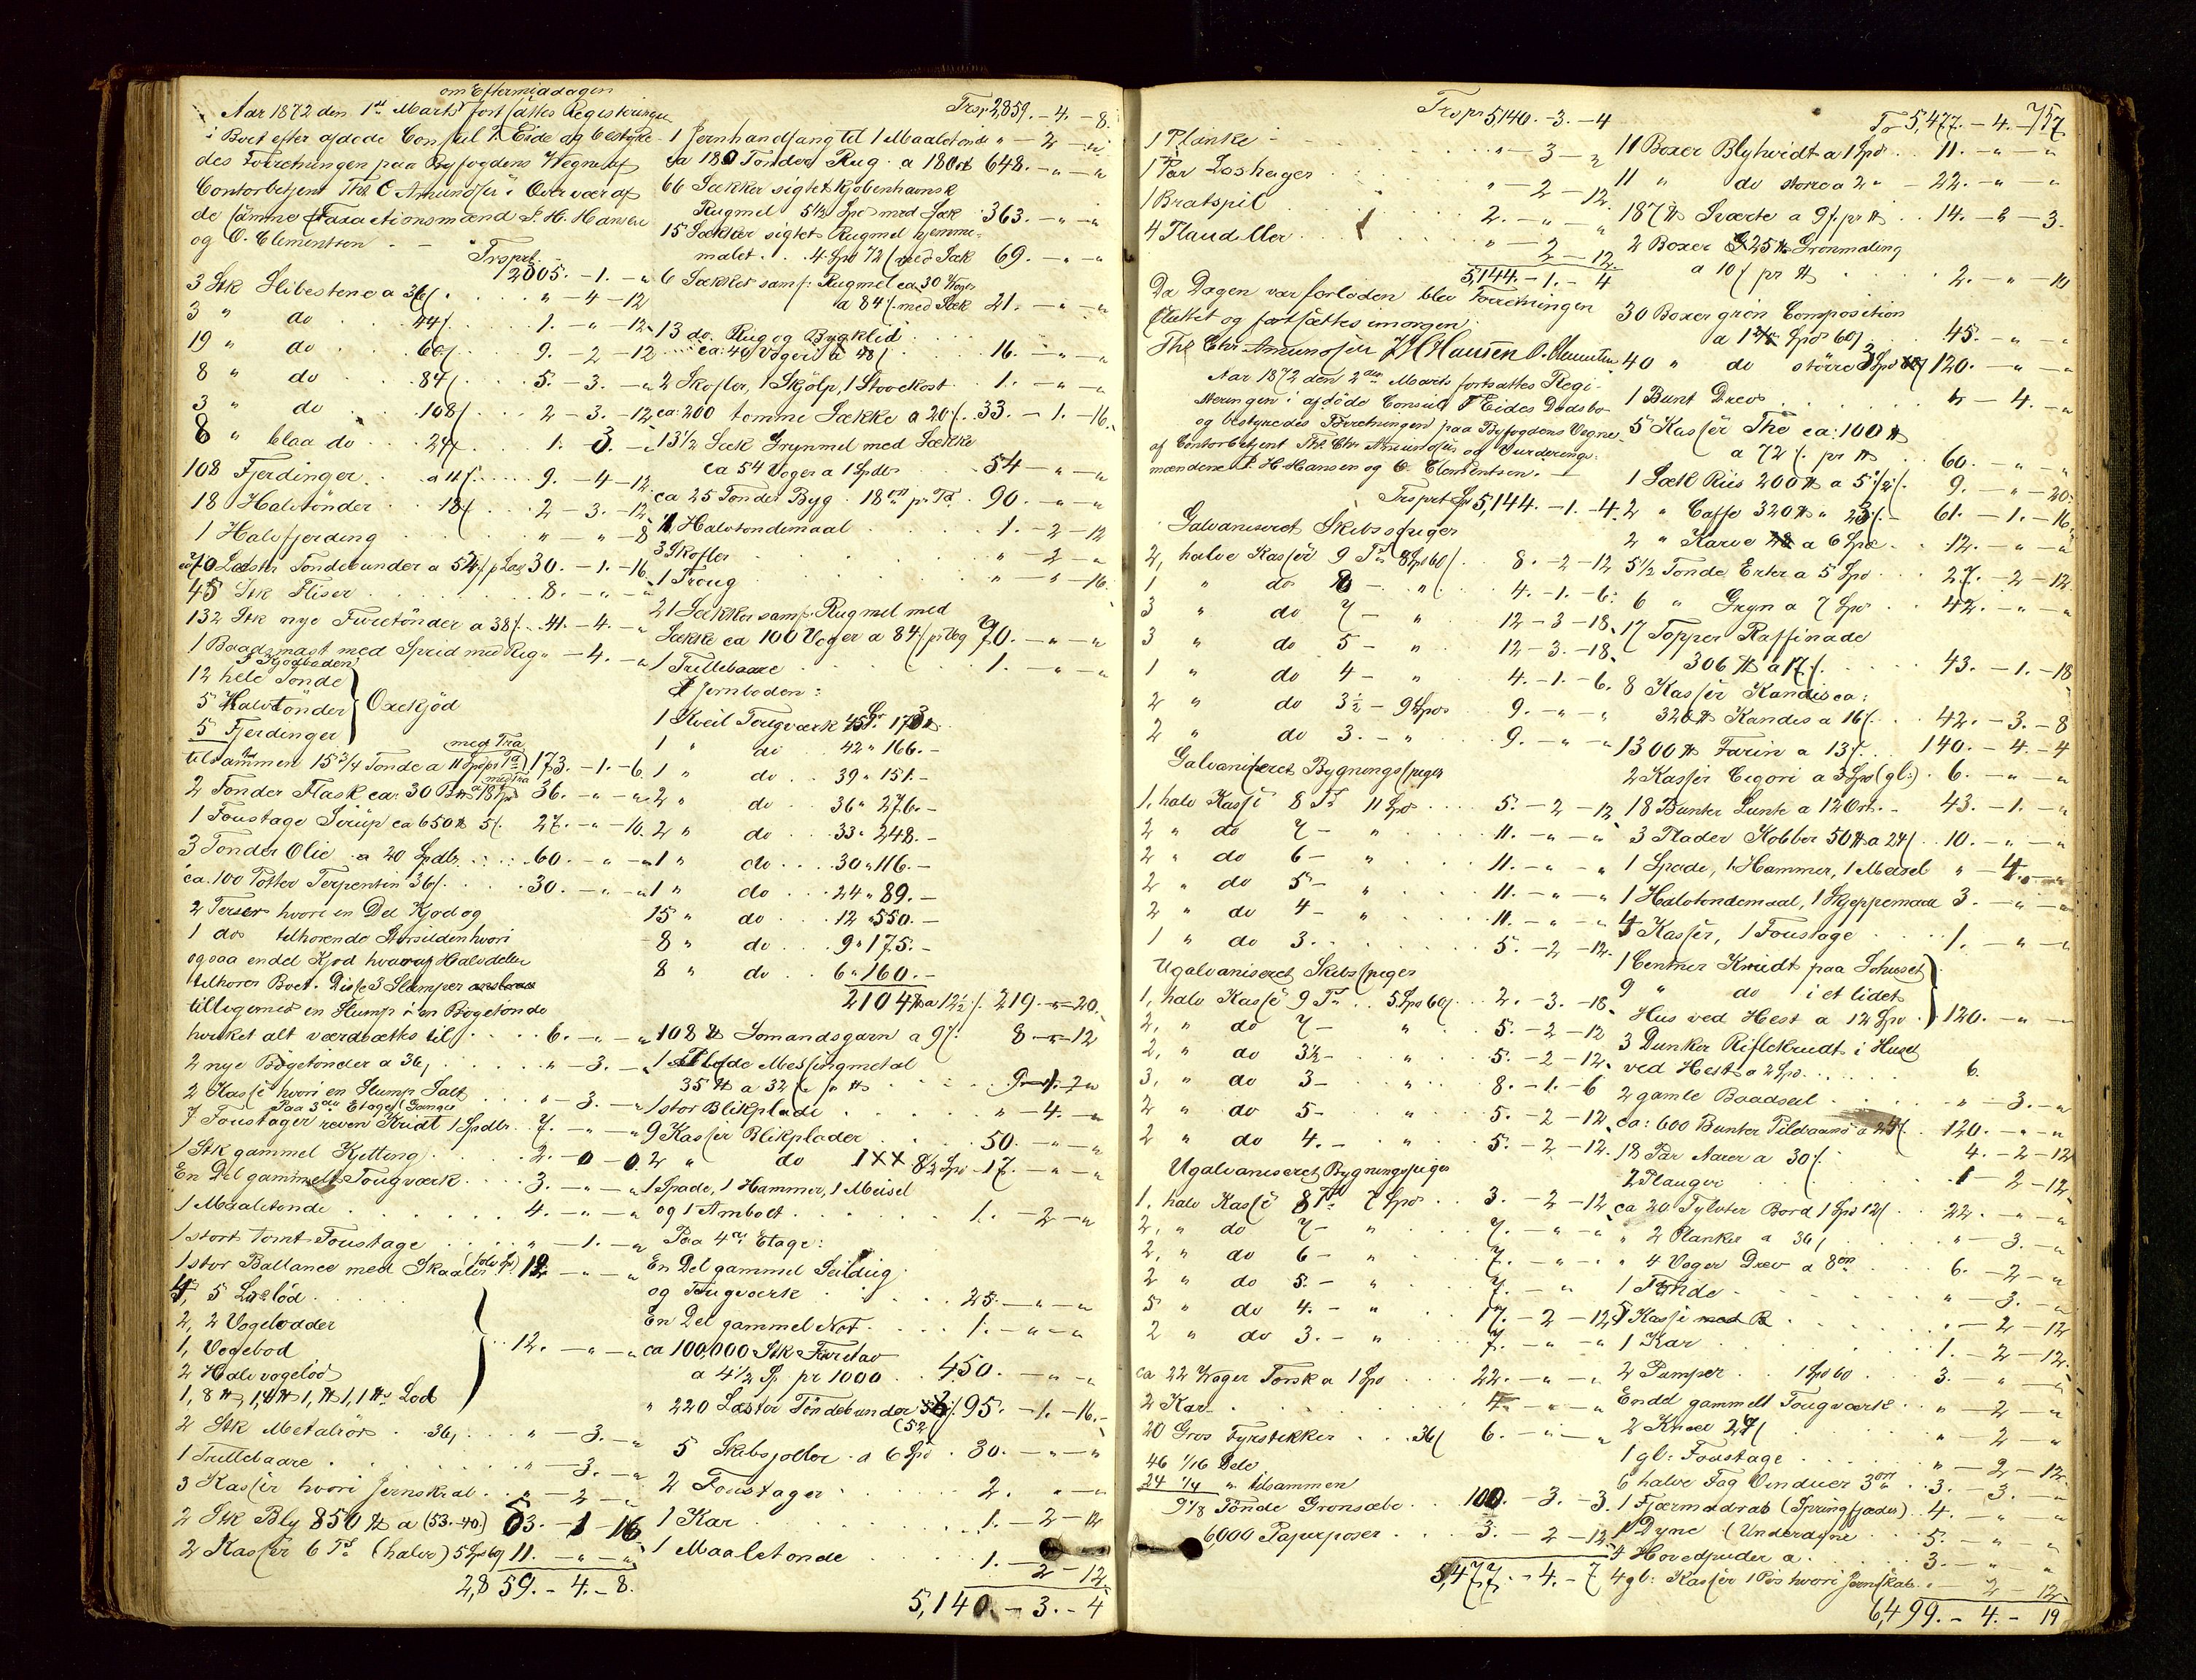 om Eftermiddagen
Aar 1872 den 1ste Marts fortsattes Registeringen
i Boet efter afdøde Consul T. Eide og bestyre-
des Forretningen paa Byfogdens Vegne af
Contorbetjent Thl. C. Amundsen i Overvær af
de samme Taxactionsmænd J. H. Hansen
og O. Clementsen.
Trsprt. 12005. - 1. - "
3 Stk Slibestene a 36/. " - 4 - 12
3 " do 44/. 1. - " - 12
19 " do 60/. 9. - 2 - 12
8 " do 84/. 5. - 3. - "
3 " do 108/. 2 - 3. - 12
8 " blaa do 24/. 1. 3. - "
108 Fjerdinger a 11/. 9. - 4 - 12
18 Halvtønder 18/. 2 - 3. - 12
1 Halvfjerding " " - 8
ca 70 Læster Tøndebunder a 54/. p Læs 30. - 1. - 16
45 Stk Fliser 8. - " - "
132 Stk nye Furetønder a 38/. 41. - 4. - "
1 Baadsmast med Spred med Rig " - 4. - "
I Kjødboden
12 hele Tønde
5 Halvtønder Oxekjød
5 Fjerdinger
med Træ
tilsammen 15 3/4 Tønde a 11 Spd pr Td 173. - 1. - 6
2 Tønder Flask ca. 30 a 18 Spd med Træ 36. - " - "
1 Foustage Sirup ca 650 ℔ 5/. 27. - " - 10
3 Tønder Olie a 20 Spdlr 60. - " - "
ca. 100 Potter Terpentin 36/. 30. - " - "
2 Terser hvori en Del Kjød og
1 do tilhørende Storsilden hvori
ogsaa endel Kjød hvoraf Halvdelen
tilhører Boet. Disse 3 Slumper
tilligemed en Slump i en Bøgetønde
hvilket alt værdsættes til 6. - " - "
2 nye Bøgetønder a 36/ " - 3. - "
2 Kasse hvori en Slump Salt " - 3. - "
Paa 3die Etage Gange
7 Foustager reven Kridt 1 Spdlr. 7. - " - "
1 Stk gammel Kjetting 2. - 0 - 0
En Del gammelt Tougværk 3. - " - "
1 Maaletønde 4. - " - "
1 stort tomt Foustage " - 1. - "
1 stor Ballance med Skaaler 12 - " - "
4, 5 Loslod
2, 2 Vogelodder
1, Vogelod 12. - " - "
2 Halv vogelod
1, 8 ℔, 1, 4 ℔, 1, ℔ 1, 1 ℔ Lod
2 Stk Metalrør 36/ " - 3. - "
1 Trillebaare " - 3. - "
3 Kasser hvori Jernskrab " - 2 - "
2 Stk Bly 850 ℔ a (53.-40) 63. - 1 - 16
2 Kasser 6 T. (halve) 5 Spd 60 11. - " - "
2,859. - 4. - 8.
Trsp. 2,859. - 4. - 8.
1 Jernhandfang til 1 Maaletønde " - 2 - "
ca 180 Tønder Rug a 18 Ort 648. - " - "
66 Sækker sigtet kjøbenhavnsk
Rugmel 5 1/2 Spd med Sæk 363. - " - "
15 Sækker sigtet Rugmel hjemme-
malet 4 Spd 72/. med Sæk 69. - " - "
6 Sækker sam: Rugmel ca. 30 Voger
a 84/. med Sæk 21. - " - "
13 do. Rug og Bygklid
ca: 40 Voger a 48/. 16. - " - "
2 Skofler, 1 Skjølp, 1 Stovekost 1. - " - "
ca: 200 tomme Sække a 20/. 33. - 1. - 16.
13 1/2 Sæk Grynmel med Sække
ca 54 Voger a 1 Spdlr 54 - " - "
ca 25 Tønder Byg 18 ort pr Td. 90. - " - "
1 Halvtøndemaal 1. - 2 - 12
3 Skofler " - 2 - "
1 Troug " - " - 16
21 Sækker sam: Rugmel med
Sække ca 100 Voger a 84/. pr Vog 70. - " - "
1 Trillebaare 1. - " - "
I Jernboden:
1 Kveil Tougværk 45 L. 173 ℔
1 " do 42 " 166. -
1 " do 39 " 151. -
2 " do 36 " 276. -
2 " do 33 " 248. -
1 " do 30 " 116. -
1 " do 24 " 89. -
15 " do 12 " 550. -
8 " do 9 " 175. -
8 " do 6 " 160. -
2104 ℔ a 12 1/2 /. 219. - " - 20.
108 ℔ Somandsgarn a 9/. 8 - " - 12
1 Plade Messingmetal
35 ℔ a 32/. pr ℔
1 stor Blikplade " - 4. - "
9 Kasser Blikplader 50. - " - "
2 " do 1XX 8 1/2 Spd 17. - " - "
1 Spade, 1 Hammer, 1 Meisel
og 1 Ambolt 1. - 2 - "
Paa 4de Etage:
En Del gammel Seildug
og Tougværk 25. - " - "
En Del gammel Not 1. - " - "
ca 100,000 Stk Furetav
a 4 1/2 Sp. pr 1000 450. - " - "
" 220 Læster Tøndebunder 95. - 1. - 16. -
(52/.)
5 Skibsjoller a 6 Spd 30. - " - "
2 Foustager 2. " - "
1 Kar 1. - 2 - 12
1 Maaletønde 1. - 2 - 12
5,140. - 3. - 4
757
Trspr 5,140. - 3. - 4
1 Planke " - 3 - "
1 Par Loshager " - 2 - 12
1 Bratspil 2. - " - "
4 Flaudller " - 2 - 12
5,144. - 1. - 4
Da Dagen var forløden blev Forretningen
sluttet og fortsættes imorgen.
Thl Chr Amundsen J H Hansen O. Clementsen
Aar 1872 den 2den Marts fortsattes Regi-
steringen i afdøde Consul T Eides Dødsbo
og bestyredes Forretningen paa Byfogdens Vegne
af Contorbetjent Thl. Chr. Amundsen og Vurderings-
mændene J. H. Hansen og O. Clementsen.
Trsprt Sp 5,144. - 1. - 4.
Galvaniseret Skibsspiger
2, halve Kasser 9 T. 8 Spd 60/. 8. - 2 - 12
1 " do 8 - " 4. - 1. - 6.
3 " do 7 - " 12 - 3 - 18.
3 " do 5 - " 12 - 3. - 18.
1 " do 4 - " 4. - 1. - 6.
2 " do 3 1/2 - 9 Spd 9. - " - "
2 " do 3. - " 9. - " - "
Galvaniseret Bygningsspiger
1, halv Kasse 8 T. 11 Spd 5. - 2 - 12
2 " do 7 - " 11. - " - "
2 " do 6 - " 11. - " - "
2 " do 5 - " 11. - " - "
2 " do 4 - " 11. - " - "
1 " do 3. 5. - 2 - 12.
Ugalvaniseret Skibsspiger
1, halv Kasse 9 T. 5 Spd 60/. 2. - 3. - 18.
2, " do 7 - " 5. - 2 - 12
2, " do 3 1/2 - " 5. - 2 - 12.
3, " do 3 - " 8. - 1. - 6
2 " do 5 - " 5. - 2 - 12
2 " do 4. - " 5. - 2 - 12.
Ugalvaniseret Bygningsspiger
1, halv Kasse 8 T. 7 Spd 3. - 2 - 12
2, " do 7 - " 7. - " - "
2, " do 6 - " 7. - " - "
2 " do 5. - " 7. - " - "
5 " do 4. - " 17. - 2 - 12
2 " do 3. - " 7. - " - "
ca 22 Voger Torsk a 1 Spd 22. - " - "
2 Kar 4. - " - "
20 Gros Fyrstikker 36/ 6. - " - "
46 1/16 Dele
24 1/4 " tilsammen
9 1/8 Tønde Grønsæbe 100. - 3. - 3.
6000 Papirposer 3. - 2 - 12
5,477. - 4. - 7
Tr 5,477. - 4. - 7
11 Boxer Blyhvidt a 1 Spd 11. - " - "
11 " do større a 2 " 22. - " - "
187 ℔ Sværte a 9/. pr ℔ 14. - " - 3.
2 Boxer 25 ℔ Grønmaling
a 10/ pr ℔ 2. - " - 10
30 Boxer grøn Composition
a 1 Spd 60/. 45. - " - "
40 " do større 3 Spd 120. - " - "
1 Bunt Drev " - 4. - "
5 Kasser The ca: 100 ℔
a 72/. pr ℔ 60. - " - "
1 Sæk Riis 200 ℔ a 5 1/2 /. 9. - " - 20.
2 " Caffe 320 ℔ " 23/. 61. - 1. - 16.
2 " Karve a 6 Spd 12. - " - "
5 1/2 Tønde Erter a 5 Spd 27. - 2 - 12
6 " Gryn a 7 Spd 42. - " - "
17 Topper Raffinade
306 ℔ a 17/. 43. - 1. - 18
8 Kasser Kandis ca:
320 ℔ Kandis a 16/. 42. - 3. - 8
1300 ℔ Farin a 13/. 140. - 4. - 4
2 Kasser Cigori a 3 Spd (gl:) 6. - " - "
18 Bunter Lunte a 12 Ort. 43. - 1. - "
3 Plader Kobber 50 ℔ a 24/. 10. - " - "
1 Spade, 1 Hammer, 1 Meisel " - 4. - "
1 Halvtøndemaal, 1 Skjeppemaal 3. - " - "
4 Kasser, 1 Foustage 1. - " - "
1 Centner Krudt paa Sohuset
9 " do i et lidet
Hus ved Hest a 12 Spd 120. - " - "
3 Dunker Riflekrudt i Huset
ved Hest a 2 Spd 6.
2 gamle Baadseil " - 3. - "
ca: 600 Bunter Pilebaand a 24/. 120. - " - "
18 Par Aarer a 30/. 4. - 2 - 12
2 Plauger 1 - 2 - 12.
ca 20 Tylvter Bord 1 Spd 12/. 22. - " - "
" 2 Planker a 36/ " - 3. - "
" 4 Voger Drev a 8 ort 6. - 2 - "
1 Tønde " - 3. - "
5 Kasse " - 2 - 12
1 Kar 1. - 2 - 12.
2 Pumper 1 Spd 60 3. " - "
Endel gammelt Tougværk " - 2 - "
2 Knæe 24/ " - 2 - "
1 gl: Foustage " - 2 - 12.
6 halve Fag Vinduer 3 ort 3. - 3. - "
1 Fjærmadras (Springfjæder) 4. - " - "
1 Dyne (Underdyne 5. - " - "
4 Hovedpuder a 3. - " - "
4 gl: Kasser 1 Pøs hvori Jernskab " - 2 - 12
6,499. - 4. - 19